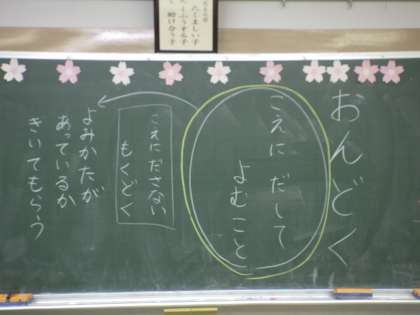 おんどく
こえに だして
よむこと
こえにださない
もくどく
よみかたが
あっているか
きいてもらう